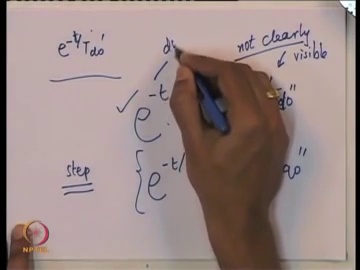 e^-t/Tdo'
di
not clearly
visible
e^-t
do"
step
e^-t/
qo"
NPTEL